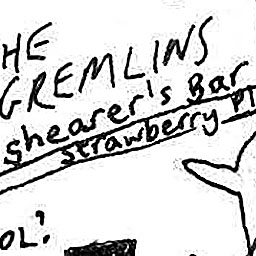 HE
GREMLINS
Shearer's Bar
Strawberry PT
OL!